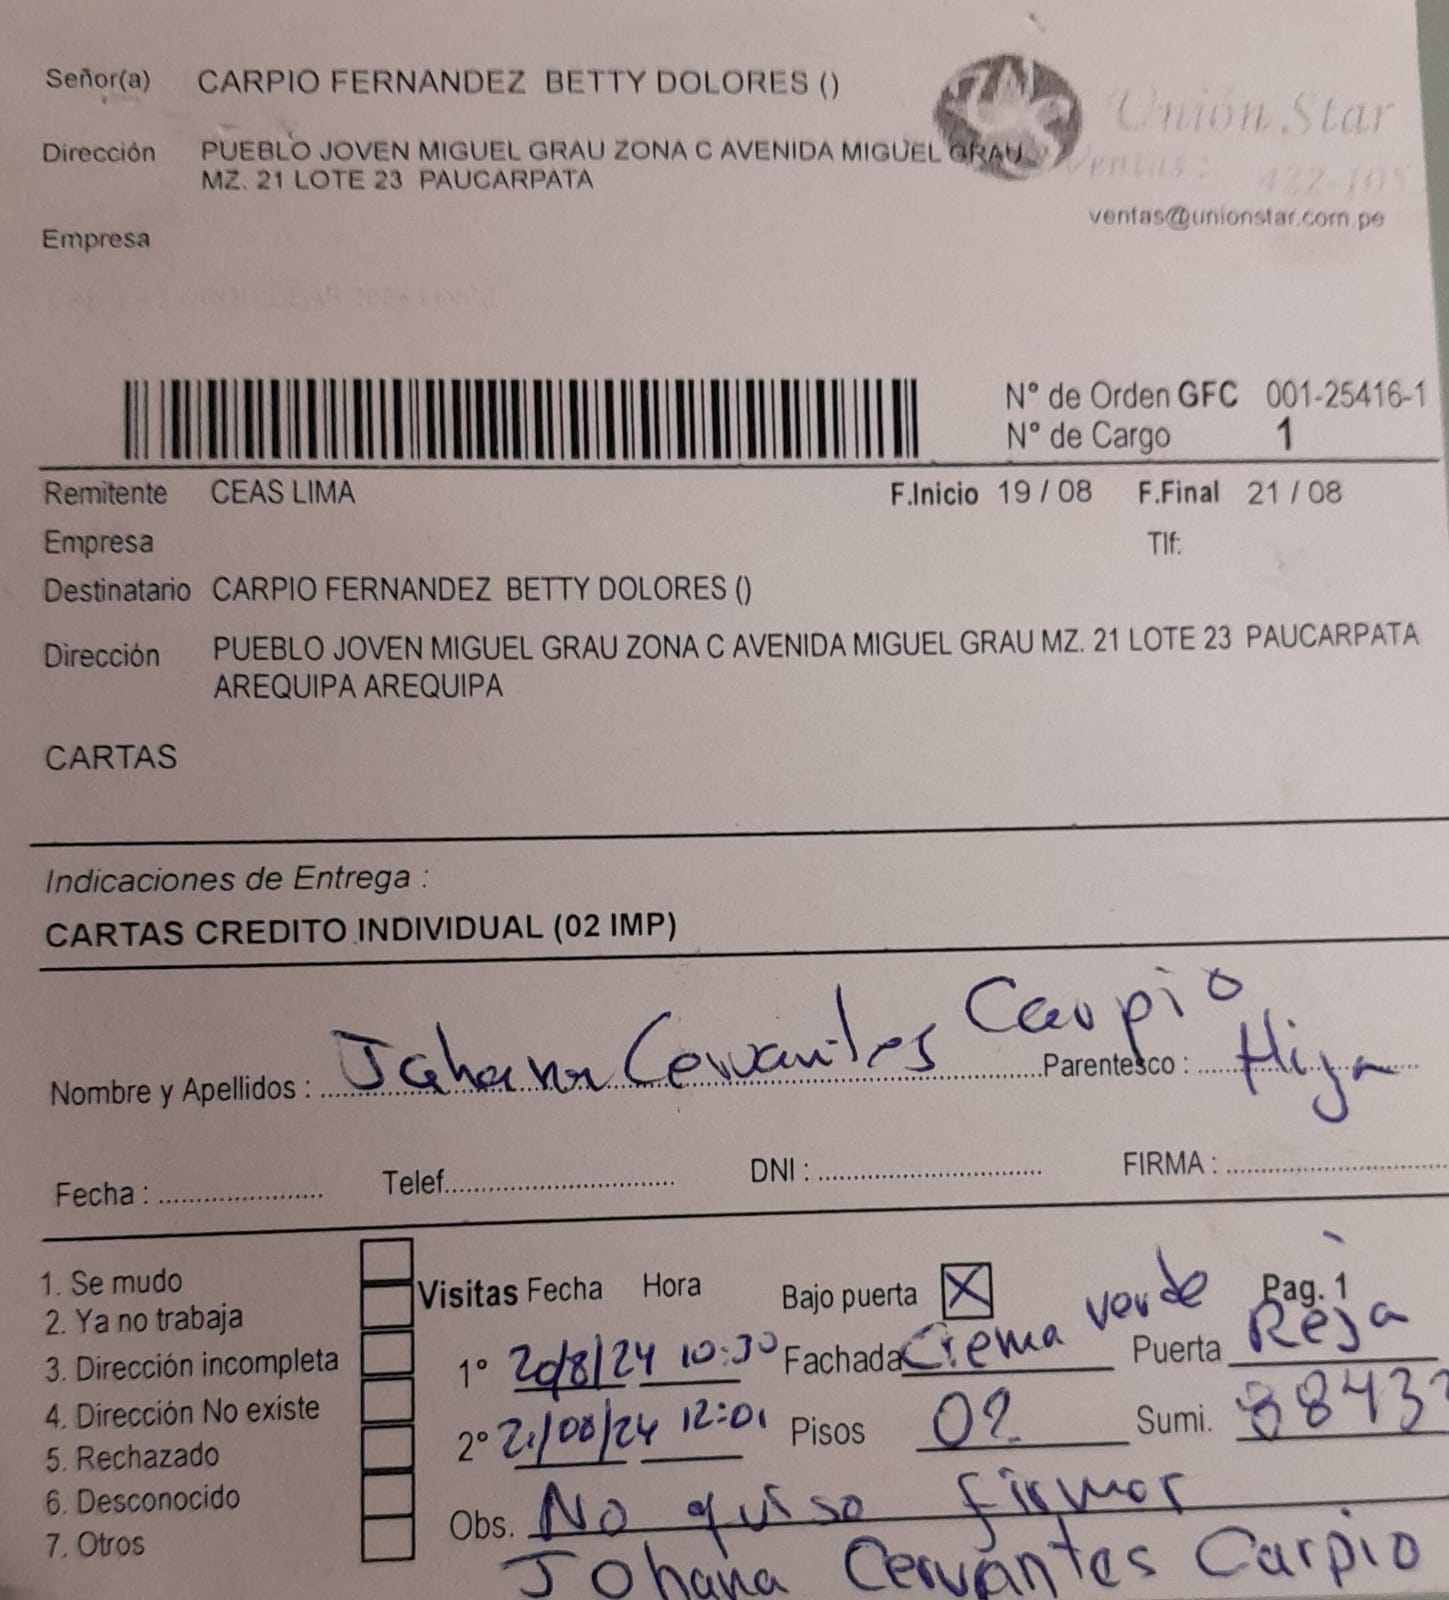 Señor(a) CARPIO FERNANDEZ BETTY DOLORES ()
Unión Star
Dirección PUEBLO JOVEN MIGUEL GRAU ZONA C AVENIDA MIGUEL GRAU
MZ. 21 LOTE 23 PAUCARPATA
Ventas: 422-105
ventas@unionstar.com.pe
Empresa
N° de Orden GFC 001-25416-1
N° de Cargo 1
Remitente CEAS LIMA F.Inicio 19 / 08 F.Final 21 / 08
Empresa Tlf:
Destinatario CARPIO FERNANDEZ BETTY DOLORES ()
Dirección PUEBLO JOVEN MIGUEL GRAU ZONA C AVENIDA MIGUEL GRAU MZ. 21 LOTE 23 PAUCARPATA
AREQUIPA AREQUIPA
CARTAS
Indicaciones de Entrega :
CARTAS CREDITO INDIVIDUAL (02 IMP)
Nombre y Apellidos : Johana Cervantes Carpio Parentesco : Hija
Fecha : Telef. DNI : FIRMA :
1. Se mudo
2. Ya no trabaja
3. Dirección incompleta
4. Dirección No existe
5. Rechazado
6. Desconocido
7. Otros
Visitas Fecha Hora Bajo puerta X Pag. 1
1° 20/8/24 10:30 Fachada Crema verde Puerta Reja
2° 21/08/24 12:01 Pisos 02 Sumi.
Obs. No quiso firmar
Johana Cervantes Carpio